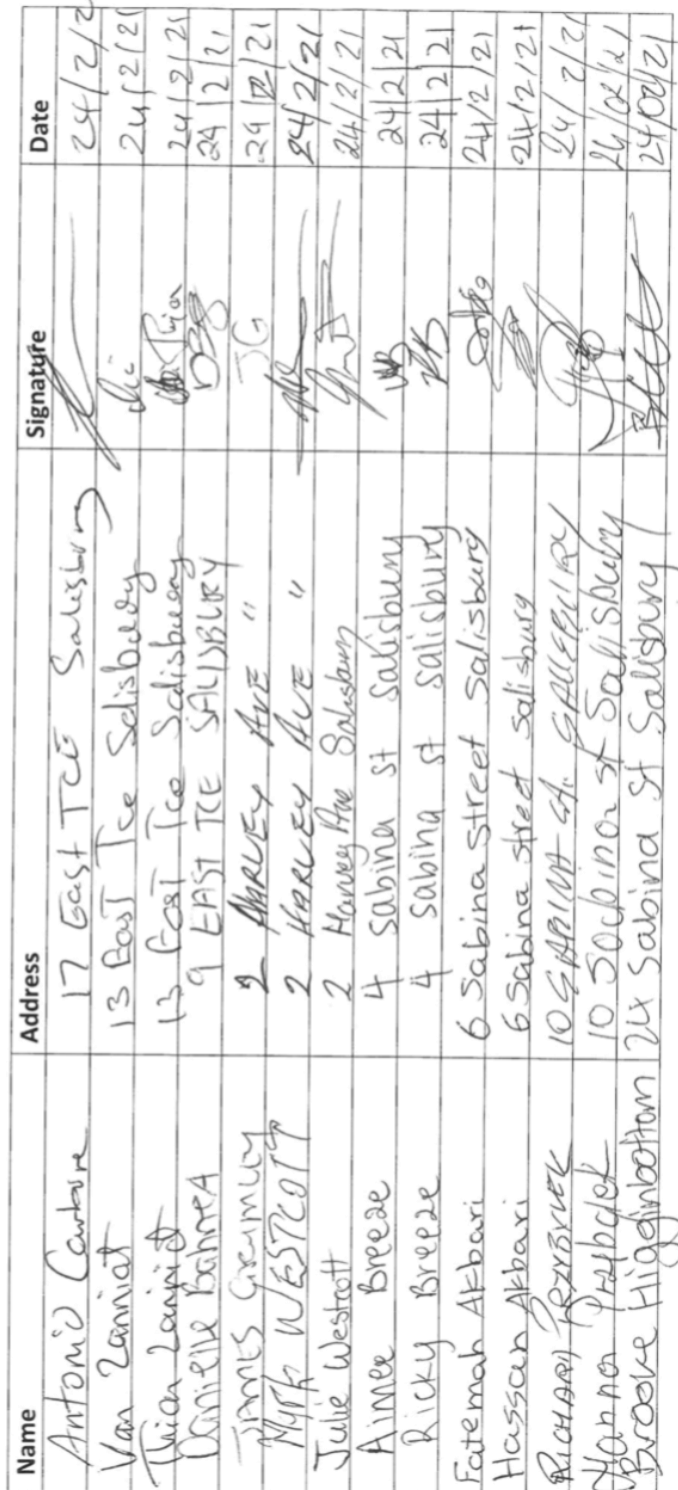 Name Address Signature Date
Antonio 17 East TCE Salisbury 24/2/2
Van Zanniat 13 East Tce Salisbury 24/2/21
13 East Tce Salisbury 24/2/21
Danielle 9 EAST TCE SALISBURY 24/2/21
JAMES 2 HARLEY AVE " JG 24/2/21
MARK WESTCOTT 2 HARLEY AVE " 24/2/21
Julie Westcott 2 Harley Ave Salisbury 24/2/21
Aimee Breeze 4 Sabina St Salisbury 24/2/21
Ricky Breeze 4 Sabina st Salisbury RB 24/2/21
Fatemah Akbari 6 Sabina Street Salisbury 24/2/21
Hassan Akbari 6 Sabina street Salisbury 24/2/21
RICHARD 10 SABINA 24/2/21
Hanna 10 Sabina st Salisbury 24/02/21
Brooke Higginbottom 24 Sabina St Salisbury 24/02/21